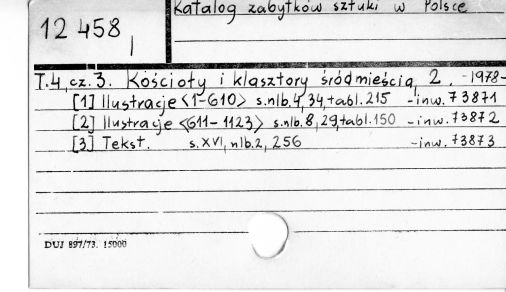 Katalog zabytków sztuki w Polsce
12 458
I
T.4, cz.3. Kościoły i klasztory śródmieścia, 2. -1978-
[1] Ilustracje <1-610> s.nlb.4, 34, tabl.215 -inw. 73871
[2] Ilustracje <611-1123> s.nlb.8, 29, tabl.150 -inw. 73872
[3] Tekst. s.XVI, nlb.2, 256 -inw. 73873
DUJ 897/73. 15000